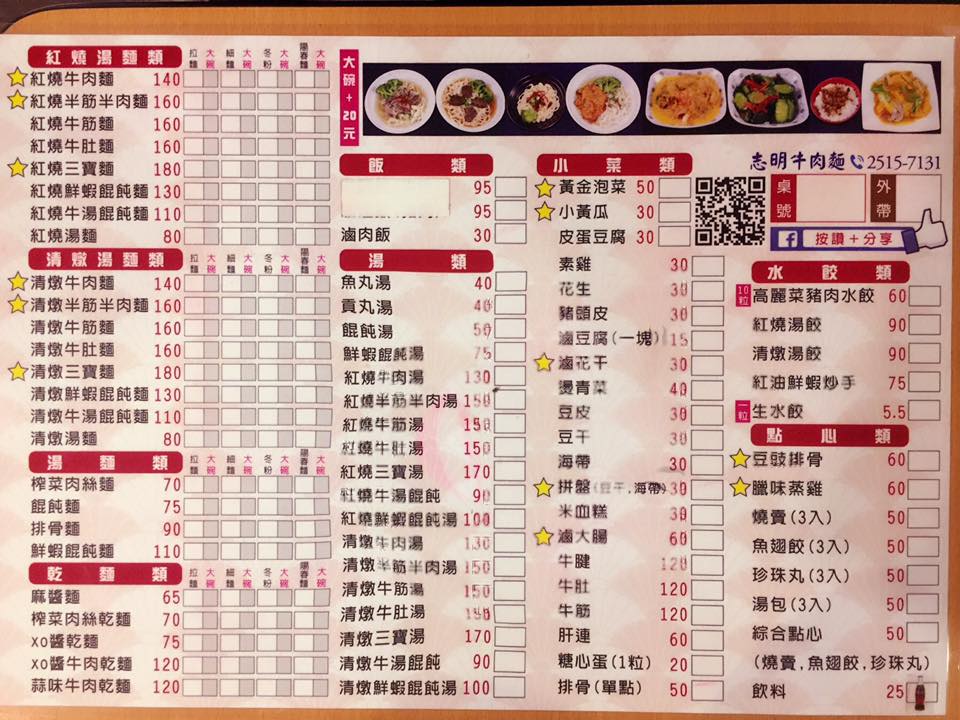 紅燒湯麵類 拉麵 大碗 細麵 大碗 冬粉 大碗 陽春麵 大碗
紅燒牛肉麵 140
紅燒半筋半肉麵 160
紅燒牛筋麵 160
紅燒牛肚麵 160
紅燒三寶麵 180
紅燒鮮蝦餛飩麵 130
紅燒牛湯餛飩麵 110
紅燒湯麵 80
清燉湯麵類 拉麵 大碗 細麵 大碗 冬粉 大碗 陽春麵 大碗
清燉牛肉麵 140
清燉半筋半肉麵 160
清燉牛筋麵 160
清燉牛肚麵 160
清燉三寶麵 180
清燉鮮蝦餛飩麵 130
清燉牛湯餛飩麵 110
清燉湯麵 80
湯麵類 拉麵 大碗 細麵 大碗 冬粉 大碗 陽春麵 大碗
榨菜肉絲麵 70
餛飩麵 75
排骨麵 90
鮮蝦餛飩麵 110
乾麵類 拉麵 大碗 細麵 大碗 冬粉 大碗 陽春麵 大碗
麻醬麵 65
榨菜肉絲乾麵 70
xo醬乾麵 75
xo醬牛肉乾麵 120
蒜味牛肉乾麵 120
大碗+20元
飯類
95
95
滷肉飯 30
湯類
魚丸湯 40
貢丸湯 40
餛飩湯 50
鮮蝦餛飩湯 75
紅燒牛肉湯 130
紅燒半筋半肉湯 150
紅燒牛筋湯 150
紅燒牛肚湯 150
紅燒三寶湯 170
紅燒牛湯餛飩 90
紅燒鮮蝦餛飩湯 100
清燉牛肉湯 130
清燉半筋半肉湯 150
清燉牛筋湯 150
清燉牛肚湯 150
清燉三寶湯 170
清燉牛湯餛飩 90
清燉鮮蝦餛飩湯 100
小菜類
黃金泡菜 50
小黃瓜 30
皮蛋豆腐 30
素雞 30
花生 30
豬頭皮 30
滷豆腐(一塊) 15
滷花干 30
燙青菜 40
豆皮 30
豆干 30
海帶 30
拼盤(豆干,海帶) 30
米血糕 30
滷大腸 60
牛腱 120
牛肚 120
牛筋 120
肝連 60
糖心蛋(1粒) 20
排骨(單點) 50
志明牛肉麵 2515-7131
桌號 外帶
f 按讚+分享
水餃類
10粒 高麗菜豬肉水餃 60
紅燒湯餃 90
清燉湯餃 90
紅油鮮蝦炒手 75
一粒 生水餃 5.5
點心類
豆豉排骨 60
臘味蒸雞 60
燒賣(3入) 50
魚翅餃(3入) 50
珍珠丸(3入) 50
湯包(3入) 50
綜合點心 50
(燒賣,魚翅餃,珍珠丸)
飲料 25